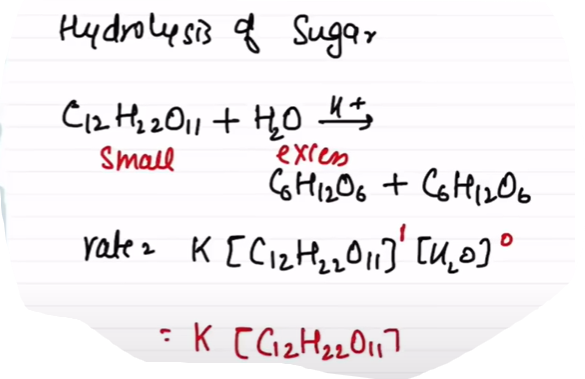 Hydrolysis of Sugar
C₁₂H₂₂O₁₁ + H₂O H⁺→
Small excess
C₆H₁₂O₆ + C₆H₁₂O₆
rate = K [C₁₂H₂₂O₁₁]¹ [H₂O]⁰
= K [C₁₂H₂₂O₁₁]